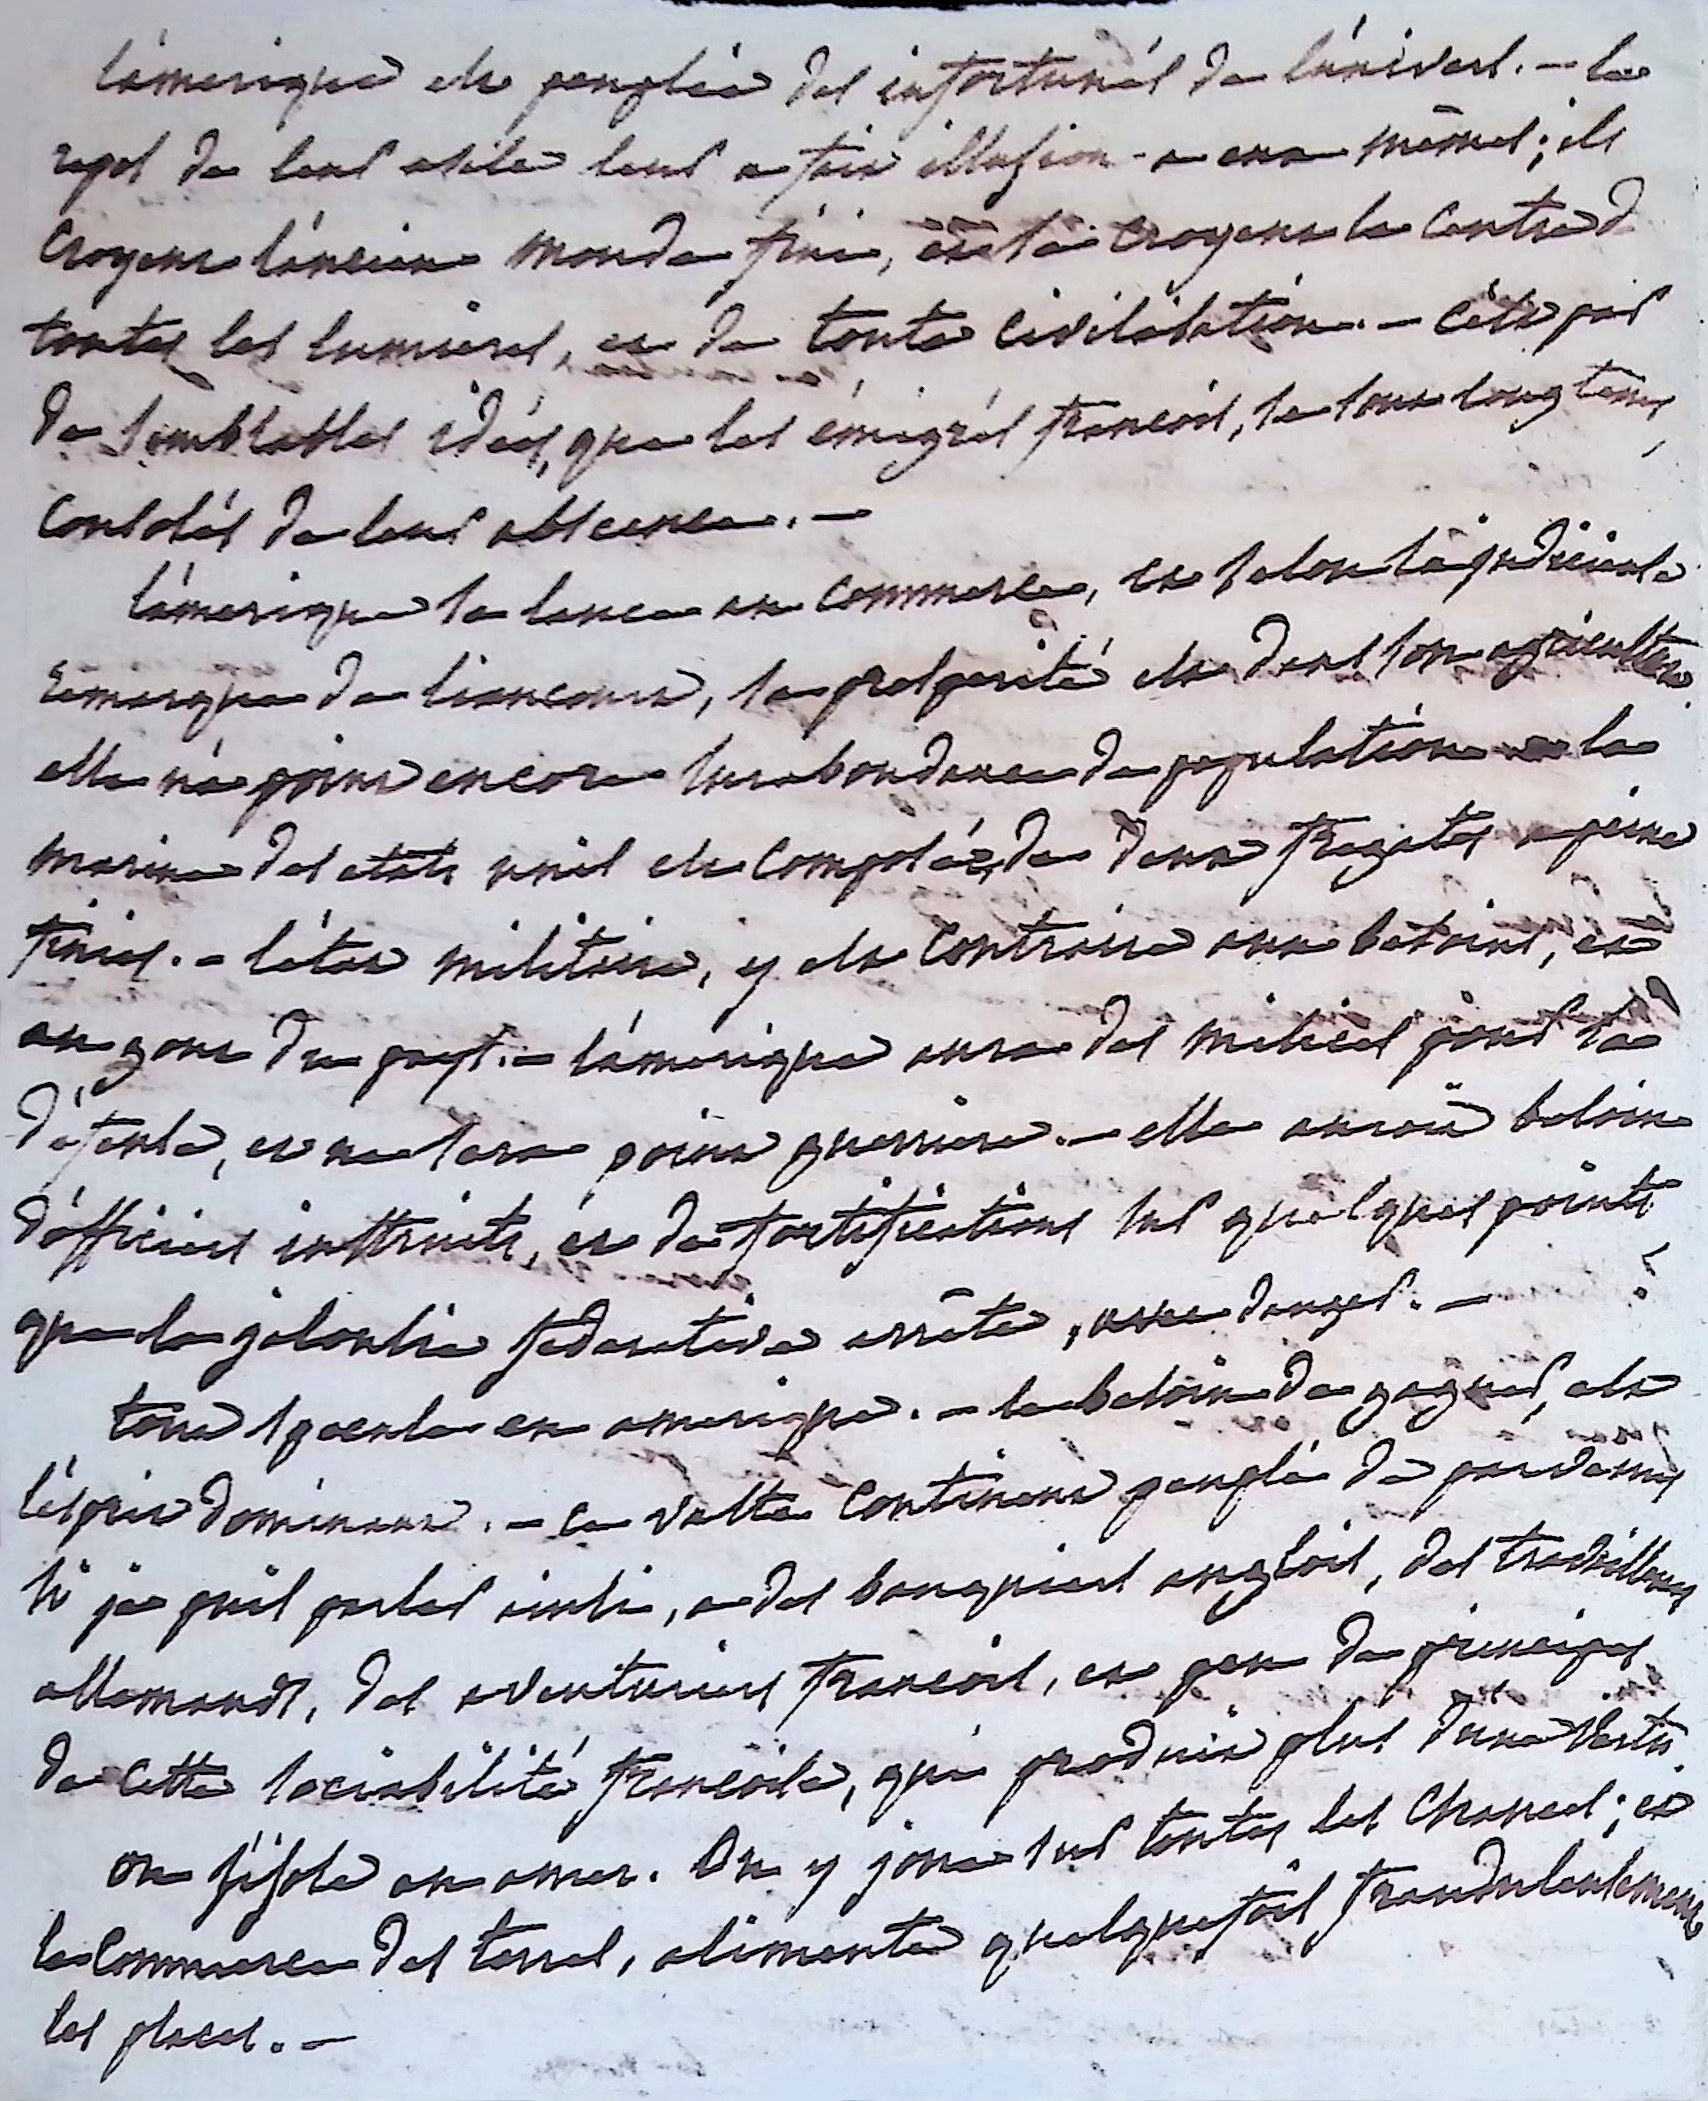 l'amerique est peuplée des infortunés de l'univers. - le
repos de leur asile leur a fait illusion a eux mêmes; ils
croyent l'ancien monde fini, et se croyent le centre d
toutes les lumieres, et de toute civilisation. - c'est par
de semblables idées, que les émigrés françois, se sont longtems
consolés de leur abscence. -
l'amerique se lance au commerce, et selon la judicieuse
remarque de liancourt, sa prosperité est dans son agriculture.
elle n'a point encore surabondance de population la
marine des etats unis est composée, de deux fregates a peine
finies. - l'état militaire, y est contraire aux besoins, et
au gout du pays. - l'amerique aura des milices pour sa
défense, et ne sera point guerriere. - elle auroit besoin
d'officiers instruits, et de fortifications sur quelques points
que la jalousie federative arrête, avec danger. -
tout specule en amerique. - le besoin de gagner, est
l'esprit dominant. - ce vaste continent peuplé de parvenus
si je puis parler ainsi, a des banquiers anglois, des travailleurs
allemands, des aventuriers françois, et peu de principes
de cette sociabilité françoise, qui produit plus d'une vertu
on s'isole on amer. On y joue sur toutes les chances; et
le commerce des terres, alimente quelquefois frauduleusement
les places. -